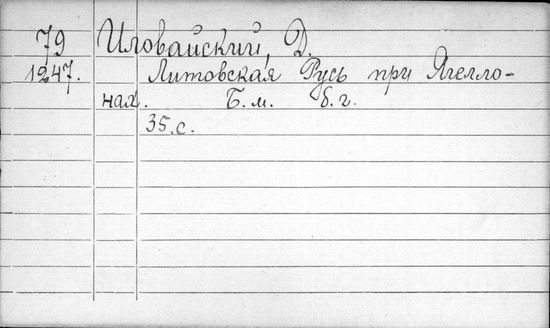 79 Иловайский, Д.
1247. Литовская Русь при Ягелло-
нах. Б.м. б.г.
35.с.